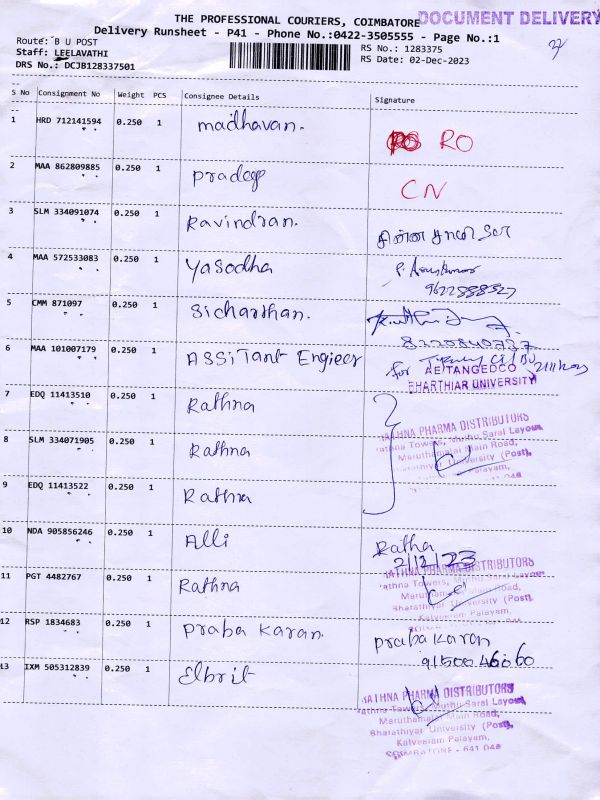 THE PROFESSIONAL COURIERS, COIMBATORE
DOCUMENT DELIVERY
Delivery Runsheet - P41 - Phone No.:0422-3505555 - Page No.:1
Route: B U POST
RS No.: 1283375
Staff: LEELAVATHI
RS Date: 02-Dec-2023
DRS No.: DCJB128337501
S No Consignment No Weight PCS Consignee Details Signature
1 HRD 712141594 0.250 1 madhavan. RO
2 MAA 862809885 0.250 1 Pradeep CN
3 SLM 334091074 0.250 1 Ravindran.
4 MAA 572533083 0.250 1 Yasodha
5 CMM 871097 0.250 1 Sicharthan.
6 MAA 101007179 0.250 1 ASSiTant Engieer for
AE/TANGEDCO
BHARTHIAR UNIVERSITY
7 EDQ 11413510 0.250 1 Rathna
RATHNA PHARMA DISTRIBUTORS
Rathna Towers, Muthu Saral Layout,
Maruthamalai Main Road,
Bharathiyar University (Post),
8 SLM 334071905 0.250 1 Rathna
9 EDQ 11413522 0.250 1 Rathna
10 NDA 905856246 0.250 1 Alli Ratha
2/12/23
RATHNA PHARMA DISTRIBUTORS
11 PGT 4482767 0.250 1 Rathna
Rathna Towers, Muthu Saral Layout
Bharathiyar University (Post),
Kalveeram Palayam,
12 RSP 1834683 0.250 1 Praba Karan. Praba Karan
91500 46060
13 IXM 505312839 0.250 1 Elbrit
RATHNA PHARMA DISTRIBUTORS
Rathna Towers, Muthu Saral Layout,
Maruthamalai Main Road,
Bharathiyar University (Post),
Kalveeram Palayam,
COIMBATORE - 641 046